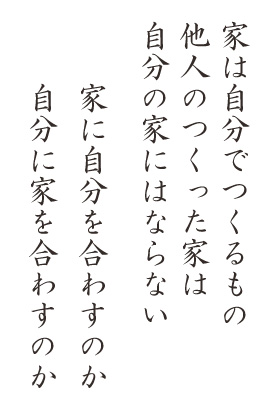 家は自分でつくるもの
他人のつくった家は
自分の家にはならない
家に自分を合わすのか
自分に家を合わすのか